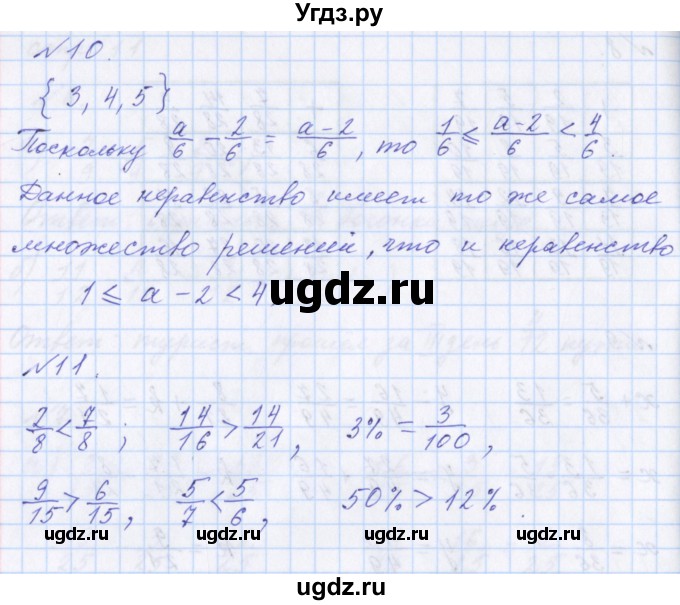 Угдз.ру
№10.
{3, 4, 5}
Поскольку a/6 - 2/6 = (a-2)/6, то 1/6 ≤ (a-2)/6 < 4/6.
Данное неравенство имеет то же самое
множество решений, что и неравенство
1 ≤ a - 2 < 4
ugdz.ru
№11.
2/8 < 7/8; 14/16 > 14/21, 3% = 3/100,
9/15 > 6/15, 5/7 < 5/6, 50% > 12%.
ugdz.ru ugdz.ru ugdz.ru
ugdz.ru